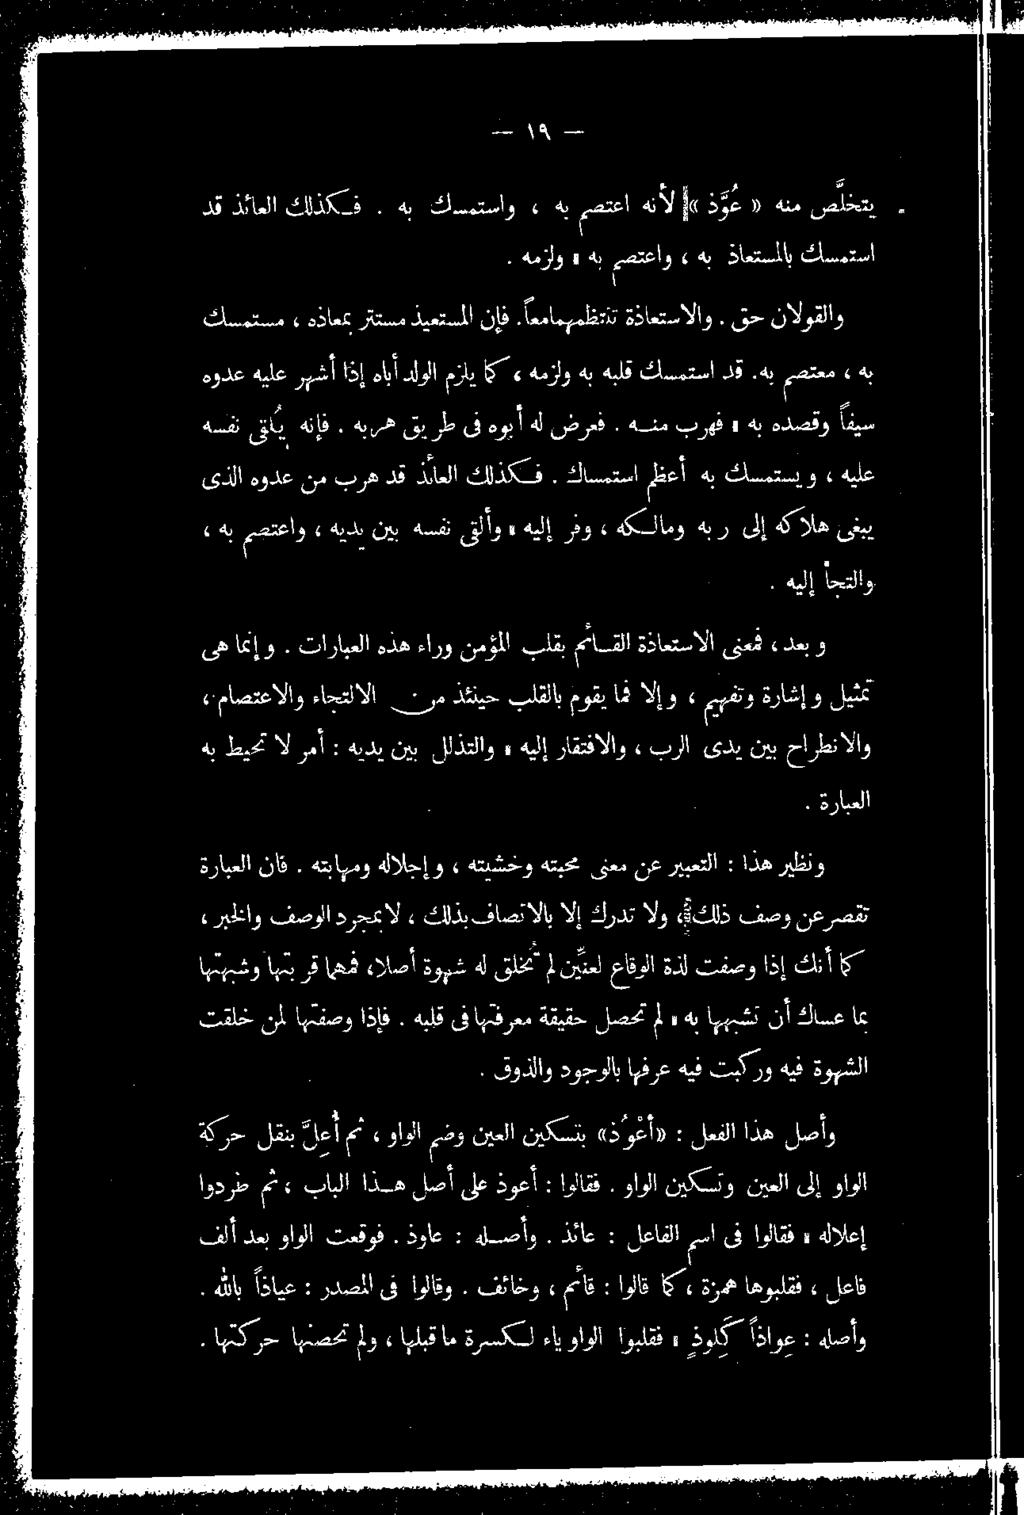 — ١٩ —
يتخلَّص منه « عُوَّذ » لأنه اعتصم به ، واستمسك به . فكذلك العائذ قد
استمسك بالمستعاذ به ، واعتصم به ، ولزمه .
والقولان حق . والاستعاذة تنتظمهما معاً . فإن المستعيذ مستتر بمعاذه ، مستمسك
به ، معتصم به . قد استمسك قلبه به ولزمه ، كما يلزم الولد أباه إذا أشهر عليه عدوه
سيفاً وقصده به ، فهرب منه . فعرض له أبوه فى طريق هربه . فإنه يُلقى نفسه
عليه ، ويستمسك به أعظم استمساك . فكذلك العائذ قد هرب من عدوه الذى
يبغى هلاكه إلى ربه ومالكه ، وفر إليه ، وألقى نفسه بين يديه ، واعتصم به ،
والتجأ إليه .
وبعد ، فمعنى الاستعاذة القائم بقلب المؤمن وراء هذه العبارات . وإنما هى
تمثيل وإشارة وتفهيم ، وإلا فما يقوم بالقلب حينئذ من الالتجاء والاعتصام ،
والانطراح بين يدى الرب ، والافتقار إليه ، والتذلل بين يديه : أمر لا تحيط به
العبارة .
ونظير هذا : التعبير عن معنى محبته وخشيته ، وإجلاله ومهابته . فان العبارة
تقصر عن وصف ذلك ، ولا تدرك إلا بالاتصاف بذلك ، لا بمجرد الوصف والخبر ،
كما أنك إذا وصفت لذة الوقاع لعنِّين لم تُخلق له شهوة أصلا ، فمهما قربتها وشبهتها
بما عساك أن تشبهها به ، لم تحصل حقيقة معرفتها فى قلبه . فإذا وصفتها لمن خلقت
الشهوة فيه وركبت فيه عرفها بالوجود والذوق .
وأصل هذا الفعل : «أَعْوُذ» بتسكين العين وضم الواو ، ثم أُعِلَّ بنقل حركة
الواو إلى العين وتسكين الواو . فقالوا : أعوذ على أصل هذا الباب ، ثم طردوا
إعلاله ، فقالوا فى اسم الفاعل : عائذ . وأصله : عاوذ . فوقعت الواو بعد ألف
فاعل ، فقلبوها همزة ، كما قالوا : قائم ، وخائف . وقالوا فى المصدر : عياذاً بالله .
وأصله : عِواذاً كَلِوِذٍ ، فقلبوا الواو ياء لكسرة ما قبلها ، ولم تحصنها حركتها .